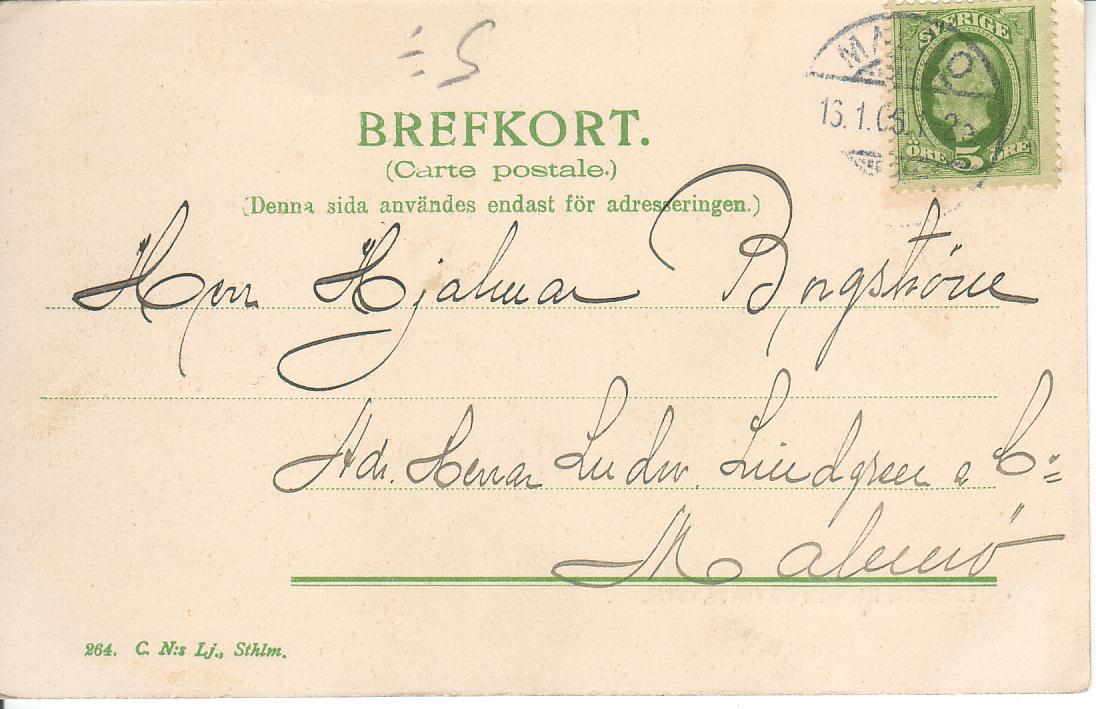 =S
SVERIGE
MALMÖ
16.1.06.
ÖRE 5 ÖRE
BREFKORT.
(Carte postale.)
(Denna sida användes endast för adresseringen.)
Herr Hjalmar
Adr. Herrar Ludw. Lindgren & C:
Malmö
264. C. N:s Lj., Sthlm.